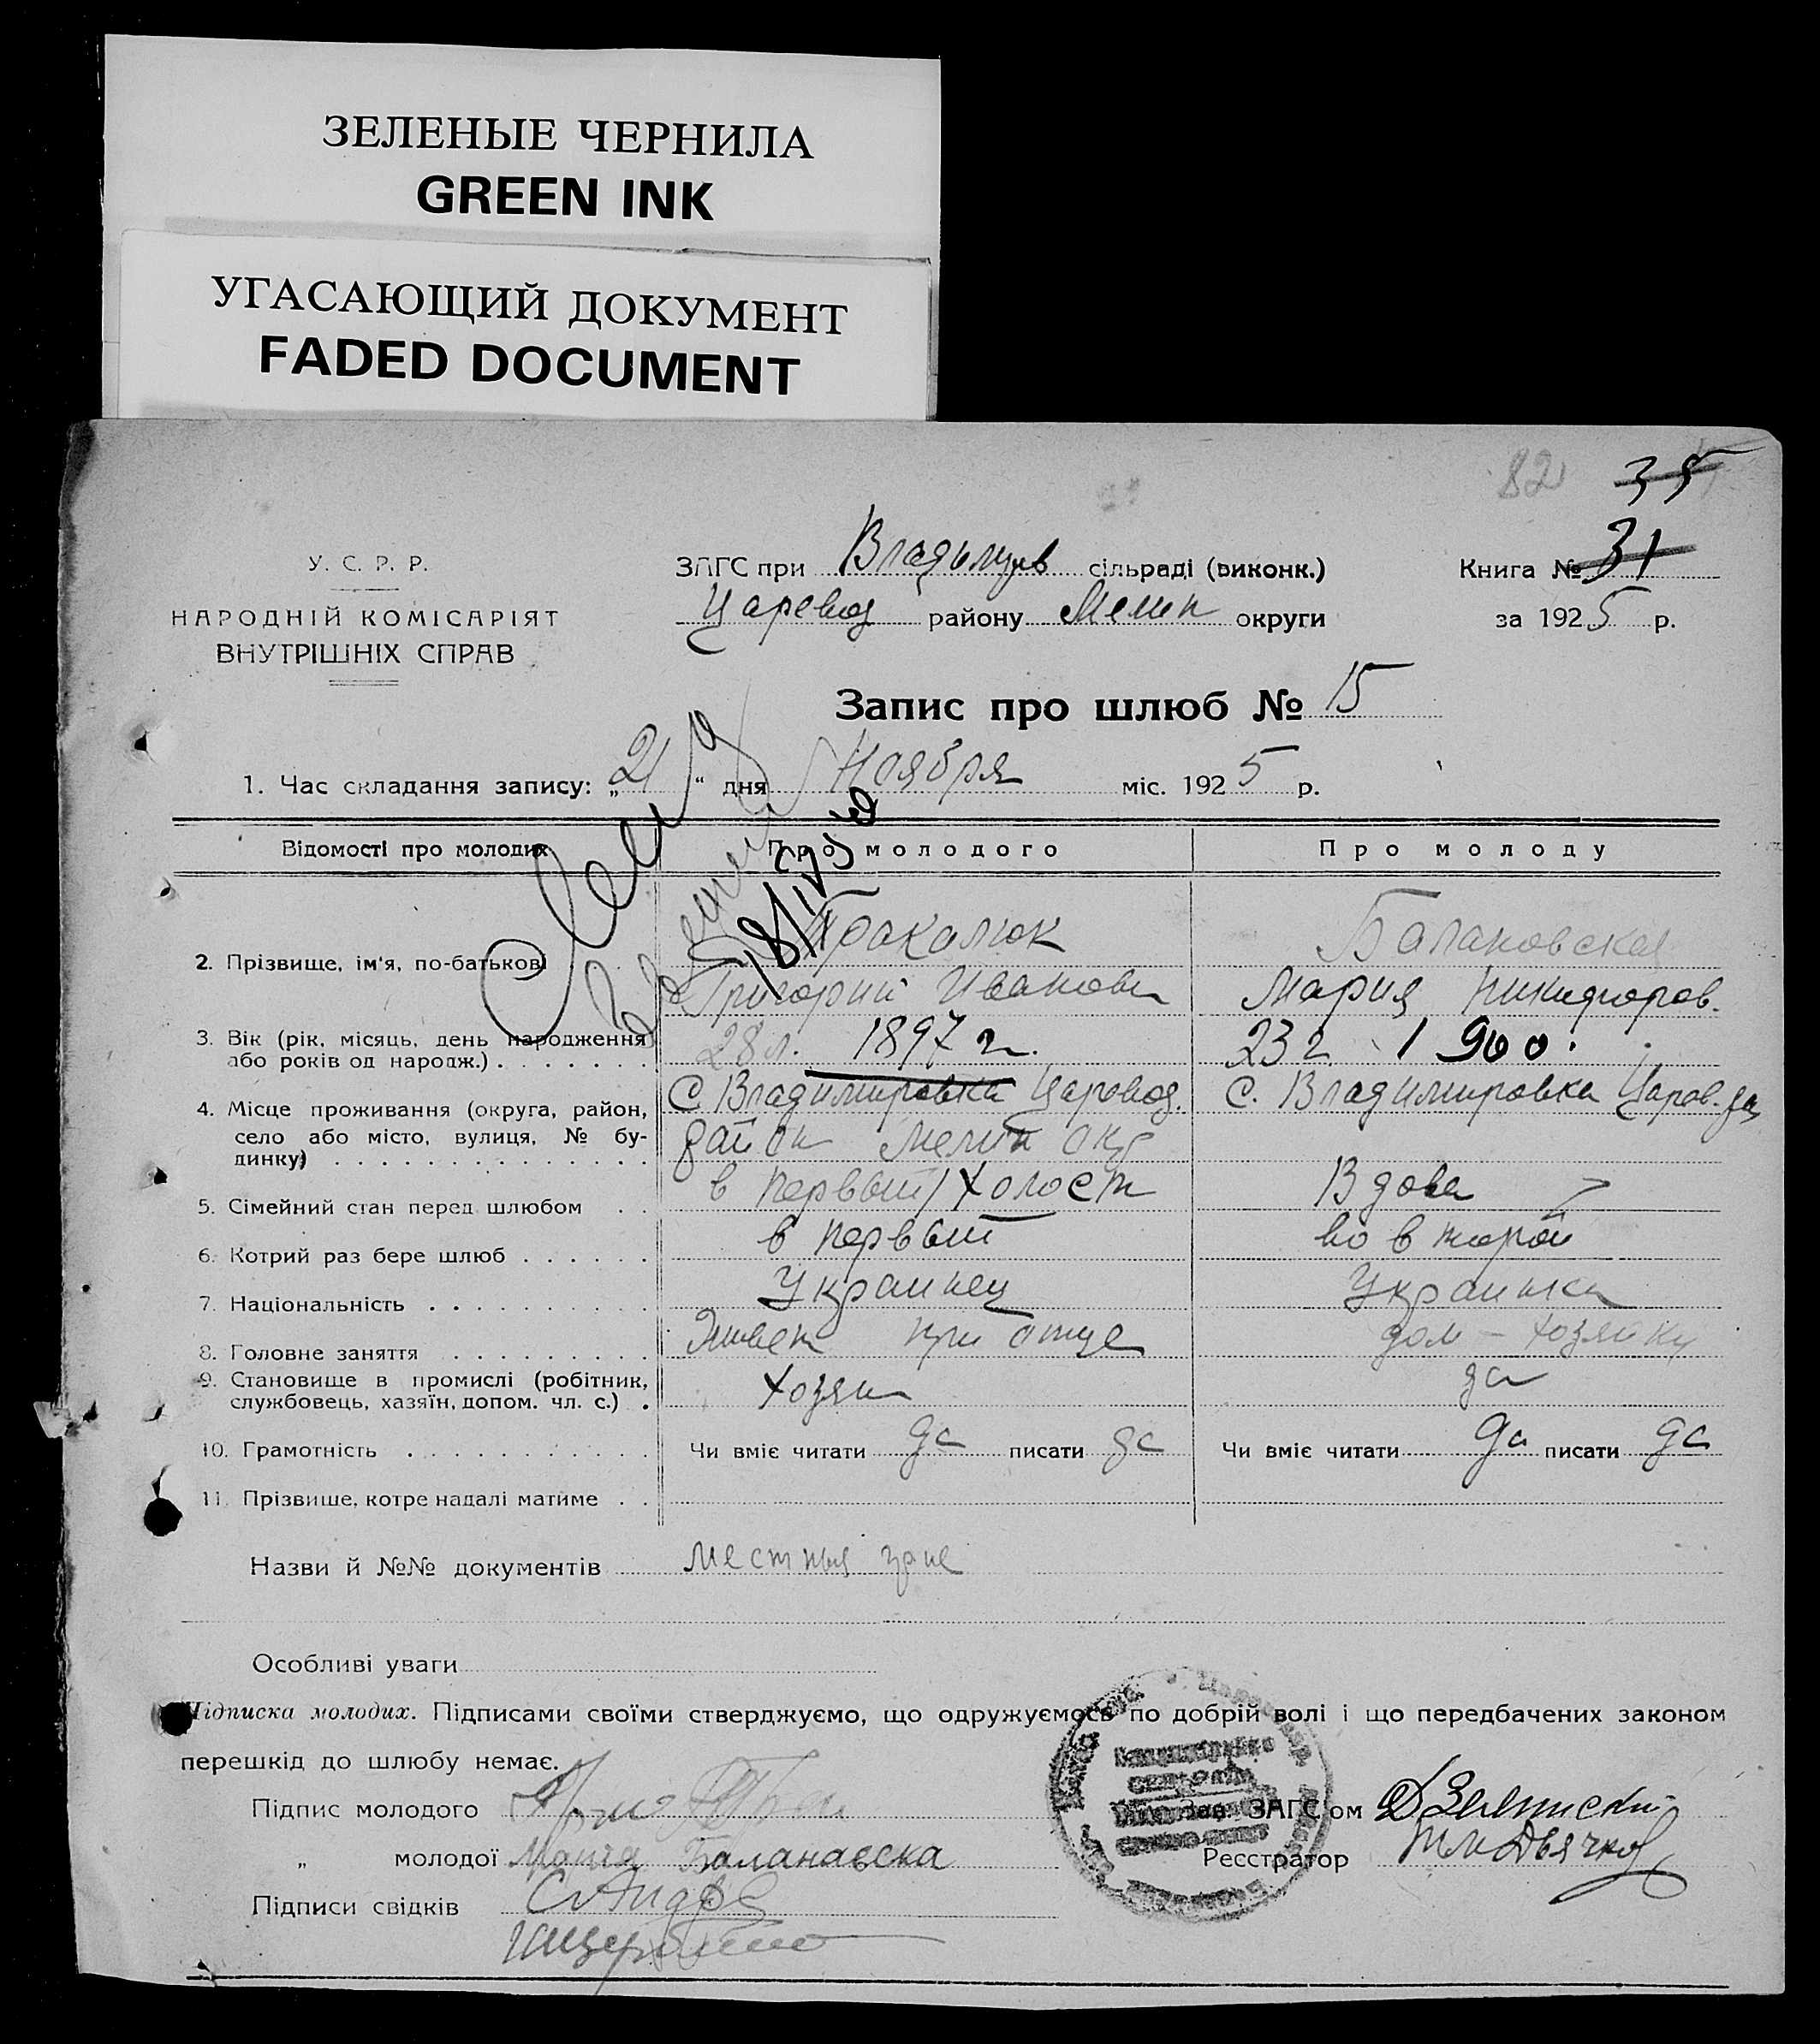 ЗЕЛЕНЫЕ ЧЕРНИЛА
GREEN INK
УГАСАЮЩИЙ ДОКУМЕНТ
FADED DOCUMENT
82 35
У. С. Р. Р.
НАРОДНІЙ КОМІСАРІЯТ
ВНУТРІШНІХ СПРАВ
ЗАГС при Владимров сільраді (виконк.)
Царевод району Мелит округи
Книга № 31
за 1925 р.
Запис про шлюб № 15
1. Час складання запису: „21“ дня Ноября міс. 1925 р.
Відомості про молодих Про молодого Про молоду
2. Прізвище, ім'я, по-батькові Баланов­ская
Григорий Иванови Мария Никифоров.
3. Вік (рік, місяць, день народження або років од народж.) 28 л. 1897 г. 23 г. 1900.
4. Місце проживання (округа, район, село або місто, вулиця, № будинку) С. Владимировка Царевод. район Мелит окр С. Владимировка Царов.
5. Сімейний стан перед шлюбом в первый / холост Вдова
6. Котрий раз бере шлюб в первый во второй
7. Національність Украинец Украинка
8. Головне заняття Живет при отце дом - хозяйка
9. Становище в промислі (робітник, службовець, хазяїн, допом. чл. с.) хозяин да
10. Грамотність Чи вміє читати да писати да Чи вміє читати да писати да
11. Прізвище, котре надалі матиме
Назви й №№ документів местныя
Особливі уваги
Підписка молодих. Підписами своїми стверджуємо, що одружуємось по добрій волі і що передбачених законом
перешкід до шлюбу немає.
Підпис молодого
Зав. ЗАГС'ом
„ молодої Марія Баланавска
Реєстратор Дьячков
Підписи свідків